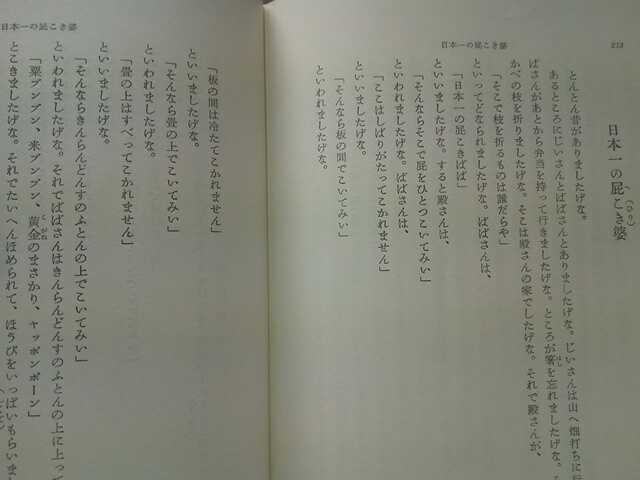 日本一の屁こき婆
日本一の屁こき婆
とんとん昔がありましたげな。
あるところにじいさんとばばさんとありましたげな。じいさんは山へ畑打ちに行
ばさんがあとから弁当を持って行きましたげな。ところが箸を忘れましたげな。
かべの枝を折りましたげな。そこは殿さんの家でしたげな。それで殿さんが、
「そこで枝を折るものは誰だらや」
といってどなられましたげな。ばばさんは、
「日本一の屁こきばば」
といいましたげな。すると殿さんは、
「そんならそこで屁をひとつこいてみい」
といわれましたげな。ばばさんは、
「ここはしばりがたってこかれません」
といいましたげな。
「そんなら板の間でこいてみい」
といわれましたげな。
日本一の屁こき婆
「板の間は冷たてこかれません」
といいましたげな。
「そんなら畳の上でこいてみい」
といわれましたげな。
「畳の上はすべってこかれません」
といいましたげな。
「そんならきんらんどんすのふとんの上でこいてみい」
といわれましたげな。それでばばさんはきんらんどんすのふとんの上に上って
「粟ブンブン、米ブンブン、黄金のまさかり、ヤッポンポーン」
とこきましたげな。それでたいへんほめられて、ほうびをいっぱいもらいまし